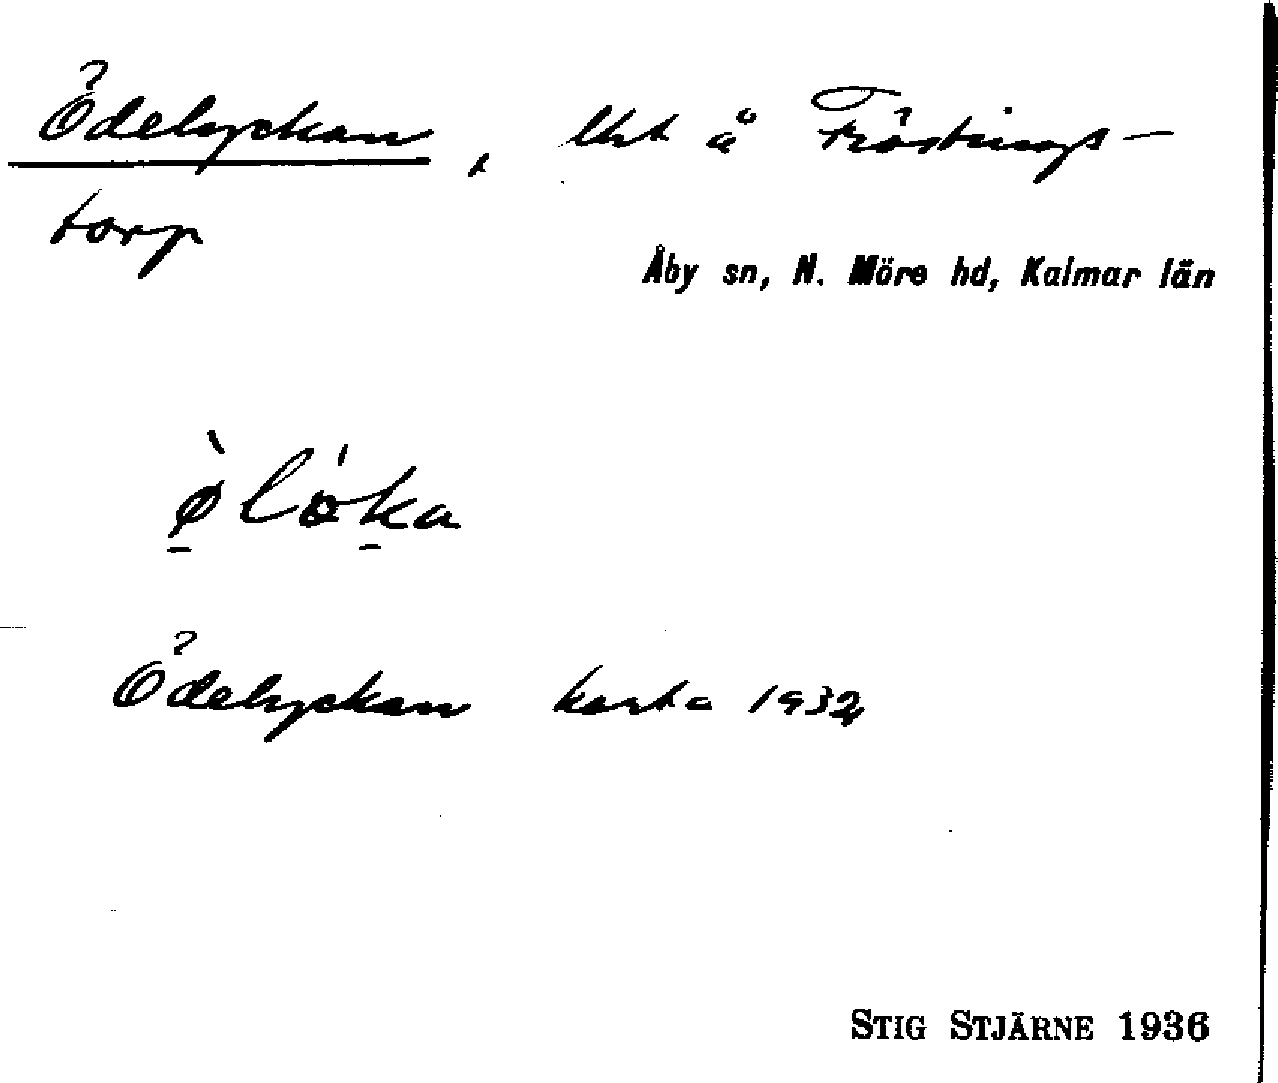 Ödelyckan, lht å Fröstings-
torp
Åby sn, N. Möre hd, Kalmar län
ø̀löka
Ödelyckan karta 1932
STIG STJÄRNE 1936